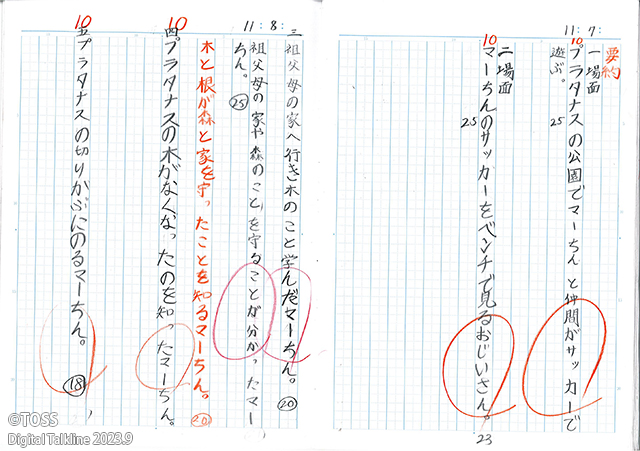 11:7
要約
一場面
10
プラタナスの公園でマーちんと仲間がサッカーで
遊ぶ。
25
二場面
10
マーちんのサッカーをベンチで見るおじいさん。
25
23
11:8
三 祖父母の家へ行き木のこと学んだマーちん。
20
祖父母の家や森のことを守ることが分かったマー
ちん。
25
木と根が森と家を守ったことを知るマーちん。
20
10
四 プラタナスの木がなくなったのを知ったマーちん。
10
五 プラタナスの切りかぶにのるマーちん。
18
©TOSS
Digital Talkline 2023.9